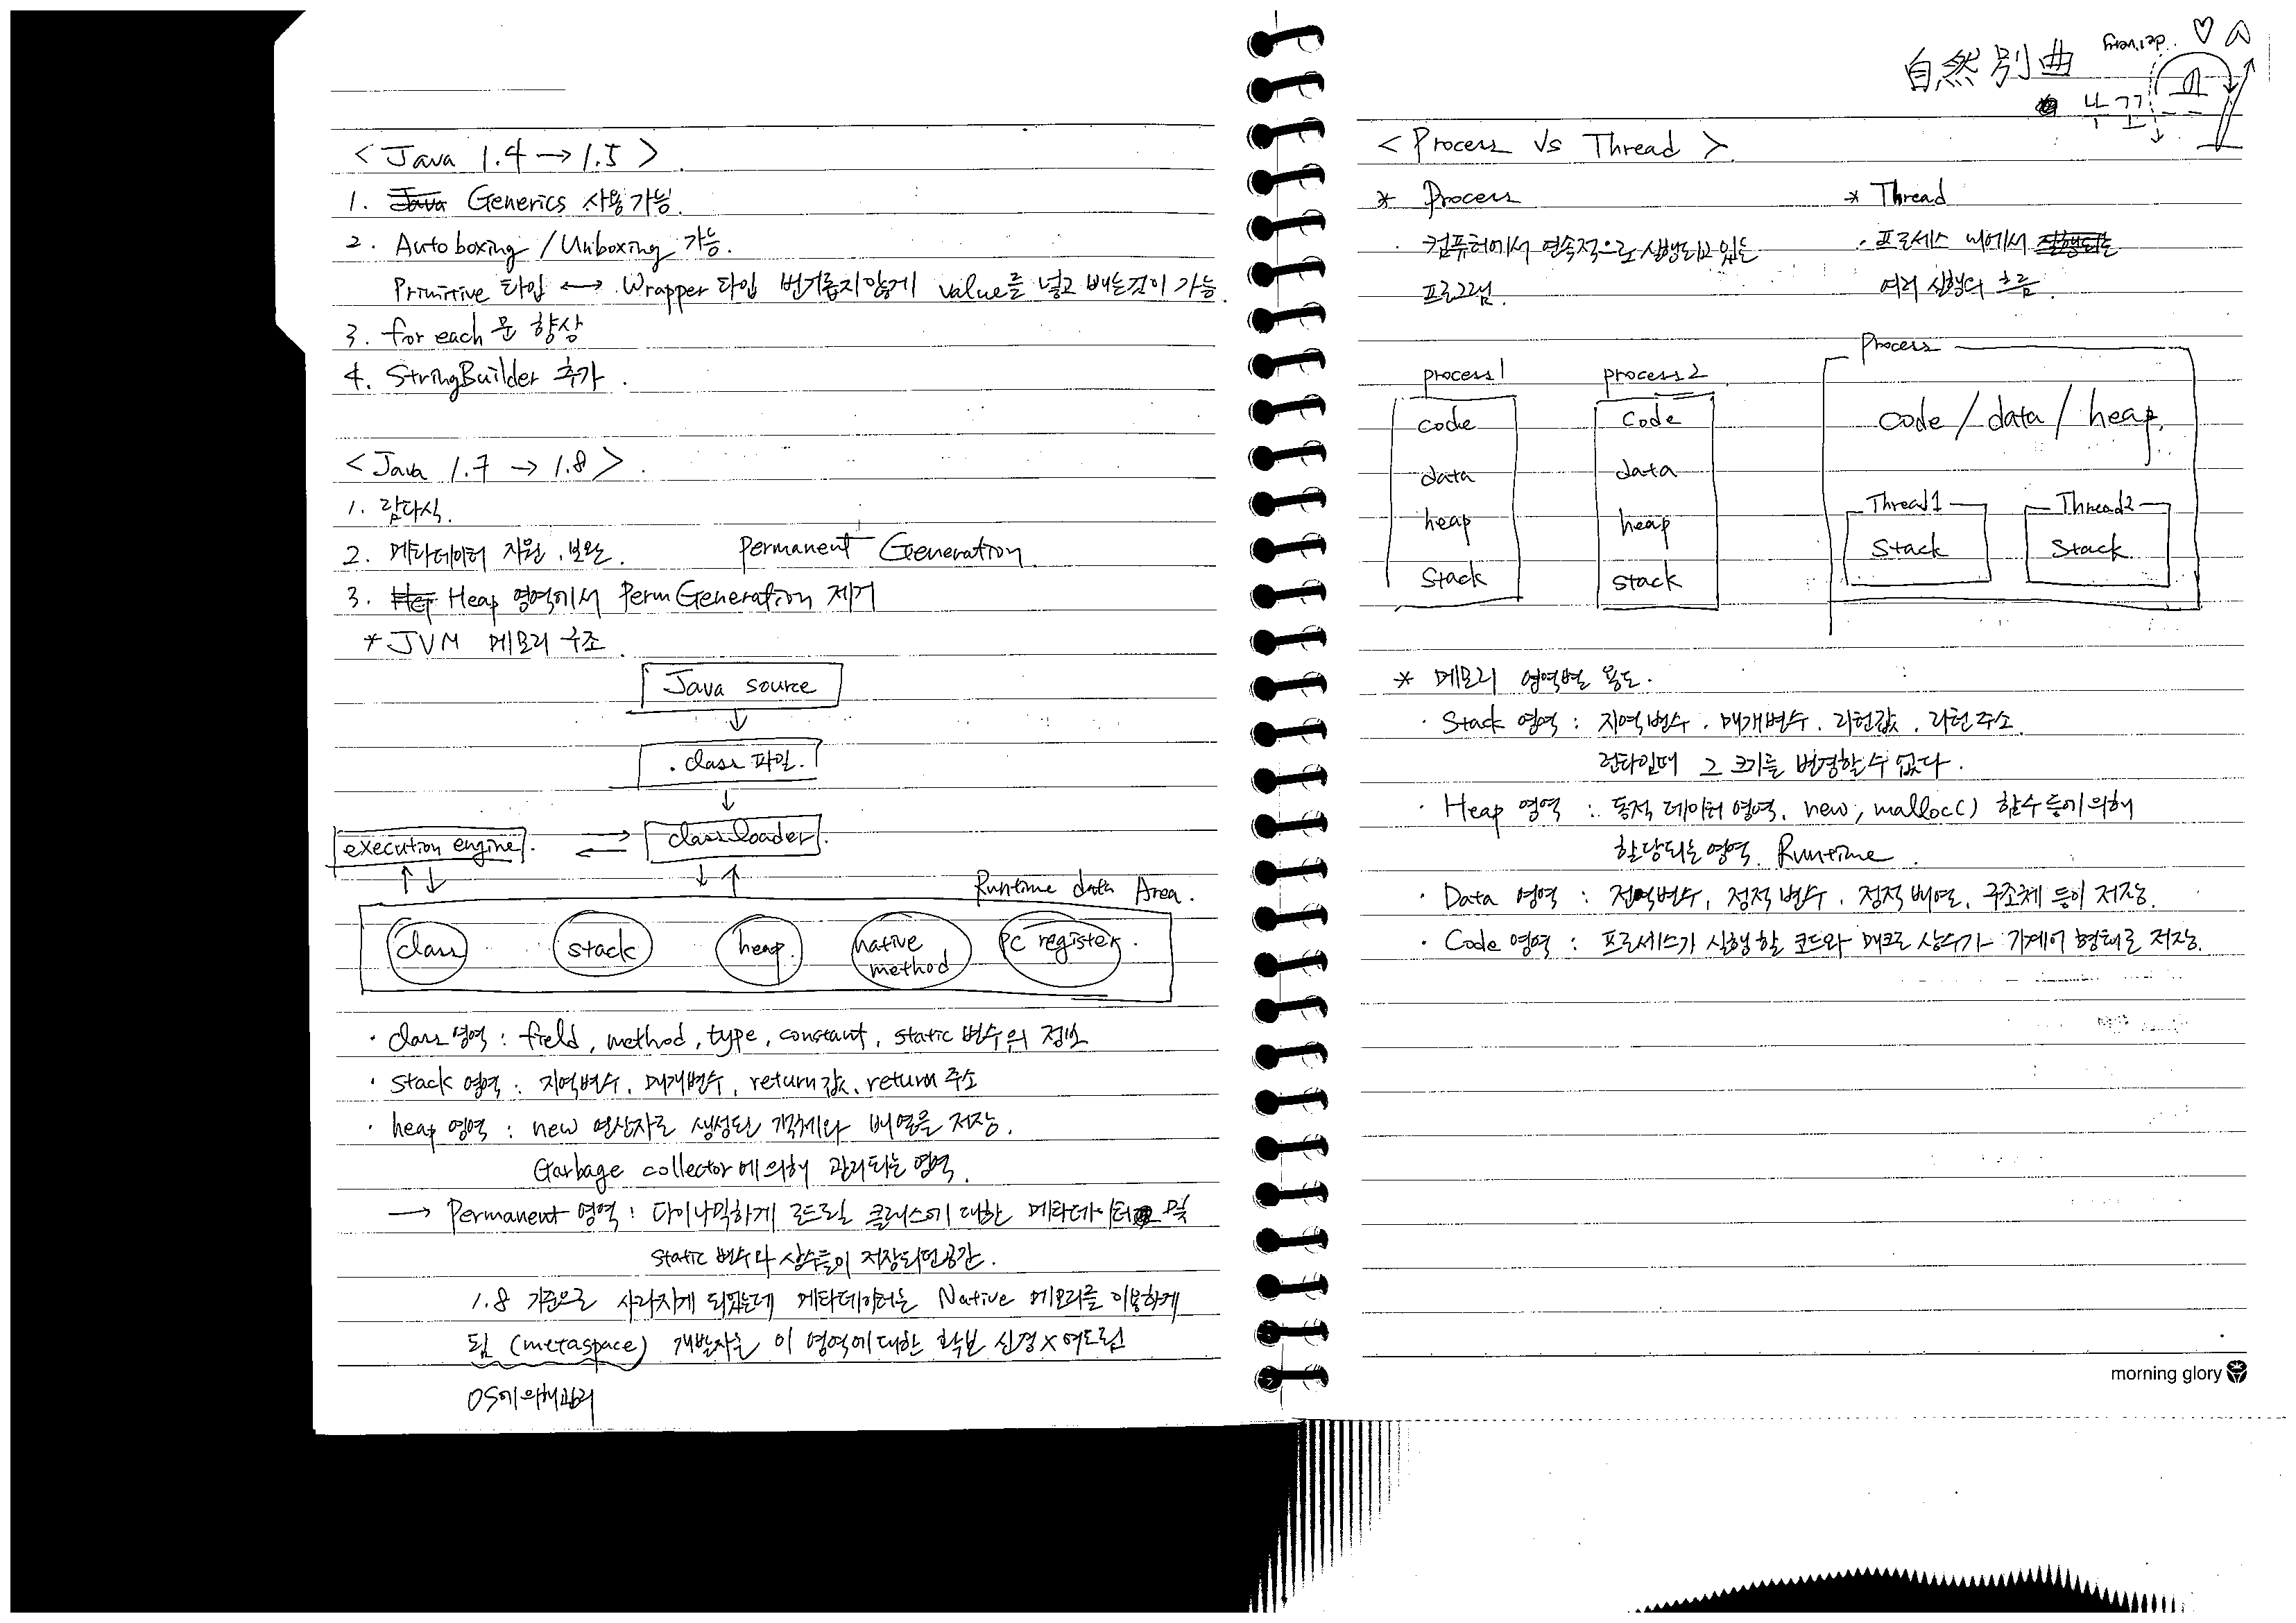 < Java 1.4 → 1.5 >
1. Java Generics 사용가능.
2. Auto boxing / Unboxing 가능.
Primitive 타입 ↔ Wrapper 타입 번거롭지않게 value를 넣고 빼는것이 가능.
3. for each 문 향상
4. StringBuilder 추가.
< Java 1.7 → 1.8 >.
1. 람다식.
2. 메타데이터 지원. 보완.
Permanent Generation
3. Heap 영역에서 Perm Generation 제거
* JVM 메모리 구조.
Java source
↓
.class 파일.
↓
execution engine. ⇄ class loader.
↑↓ ↓↑
Runtime data Area.
class stack heap native method PC register.
· class 영역 : field, method, type, constant, static 변수의 정보
· stack 영역 : 지역변수. 매개변수, return 값, return 주소
· heap 영역 : new 연산자로 생성된 객체와 배열을 저장.
Garbage collector에 의해 관리되는 영역.
→ Permanent 영역 : 다이나믹하게 로드될 클래스에 대한 메타데이터 및
static 변수와 상수들이 저장되던공간.
1.8 기준으로 사라지게 되었는데 메타데이터는 Native 메모리를 이용하게
됨 (metaspace) 개발자는 이 영역에 대한 확보 신경 X 여도됨
OS에의해관리
自然別曲
부끄
< Process vs Thread >.
* Process
· 컴퓨터에서 연속적으로 실행되고 있는
프로그램.
* Thread
· 프로세스 내에서 실행되는
여러 실행의 흐름.
process 1
code
data
heap
stack
process 2
code
data
heap
stack
Process
code / data / heap.
Thread1
stack
Thread2
stack
* 메모리 영역별 용도.
· Stack 영역 : 지역변수. 매개변수. 리턴값. 리턴주소.
런타임때 그 크기를 변경할수 없다.
· Heap 영역 : 동적 데이터 영역. new, malloc() 함수 등에 의해
할당되는 영역. Runtime.
· Data 영역 : 전역변수, 정적 변수. 정적 배열, 구조체 등이 저장.
· Code 영역 : 프로세스가 실행할 코드와 매크로 상수가 기계어 형태로 저장.
morning glory